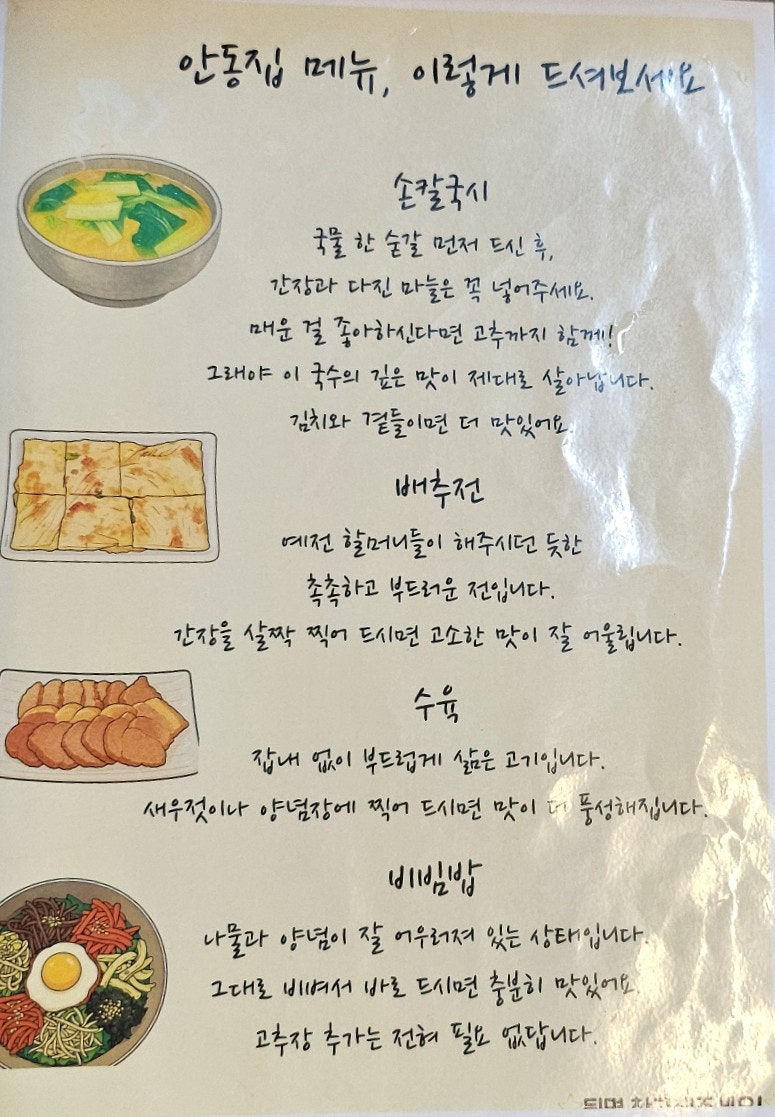 안동집 메뉴, 이렇게 드셔보세요
손칼국시
국물 한 숟갈 먼저 드신 후,
간장과 다진 마늘은 꼭 넣어주세요.
매운 걸 좋아하신다면 고추까지 함께!
그래야 이 국수의 깊은 맛이 제대로 살아납니다.
김치와 곁들이면 더 맛있어요
배추전
예전 할머니들이 해주시던 듯한
촉촉하고 부드러운 전입니다.
간장을 살짝 찍어 드시면 고소한 맛이 잘 어울립니다.
수육
잡내 없이 부드럽게 삶은 고기입니다.
새우젓이나 양념장에 찍어 드시면 맛이 더 풍성해집니다.
비빔밥
나물과 양념이 잘 어우러져 있는 상태입니다.
그대로 비벼서 바로 드시면 충분히 맛있어요.
고추장 추가는 전혀 필요 없답니다.